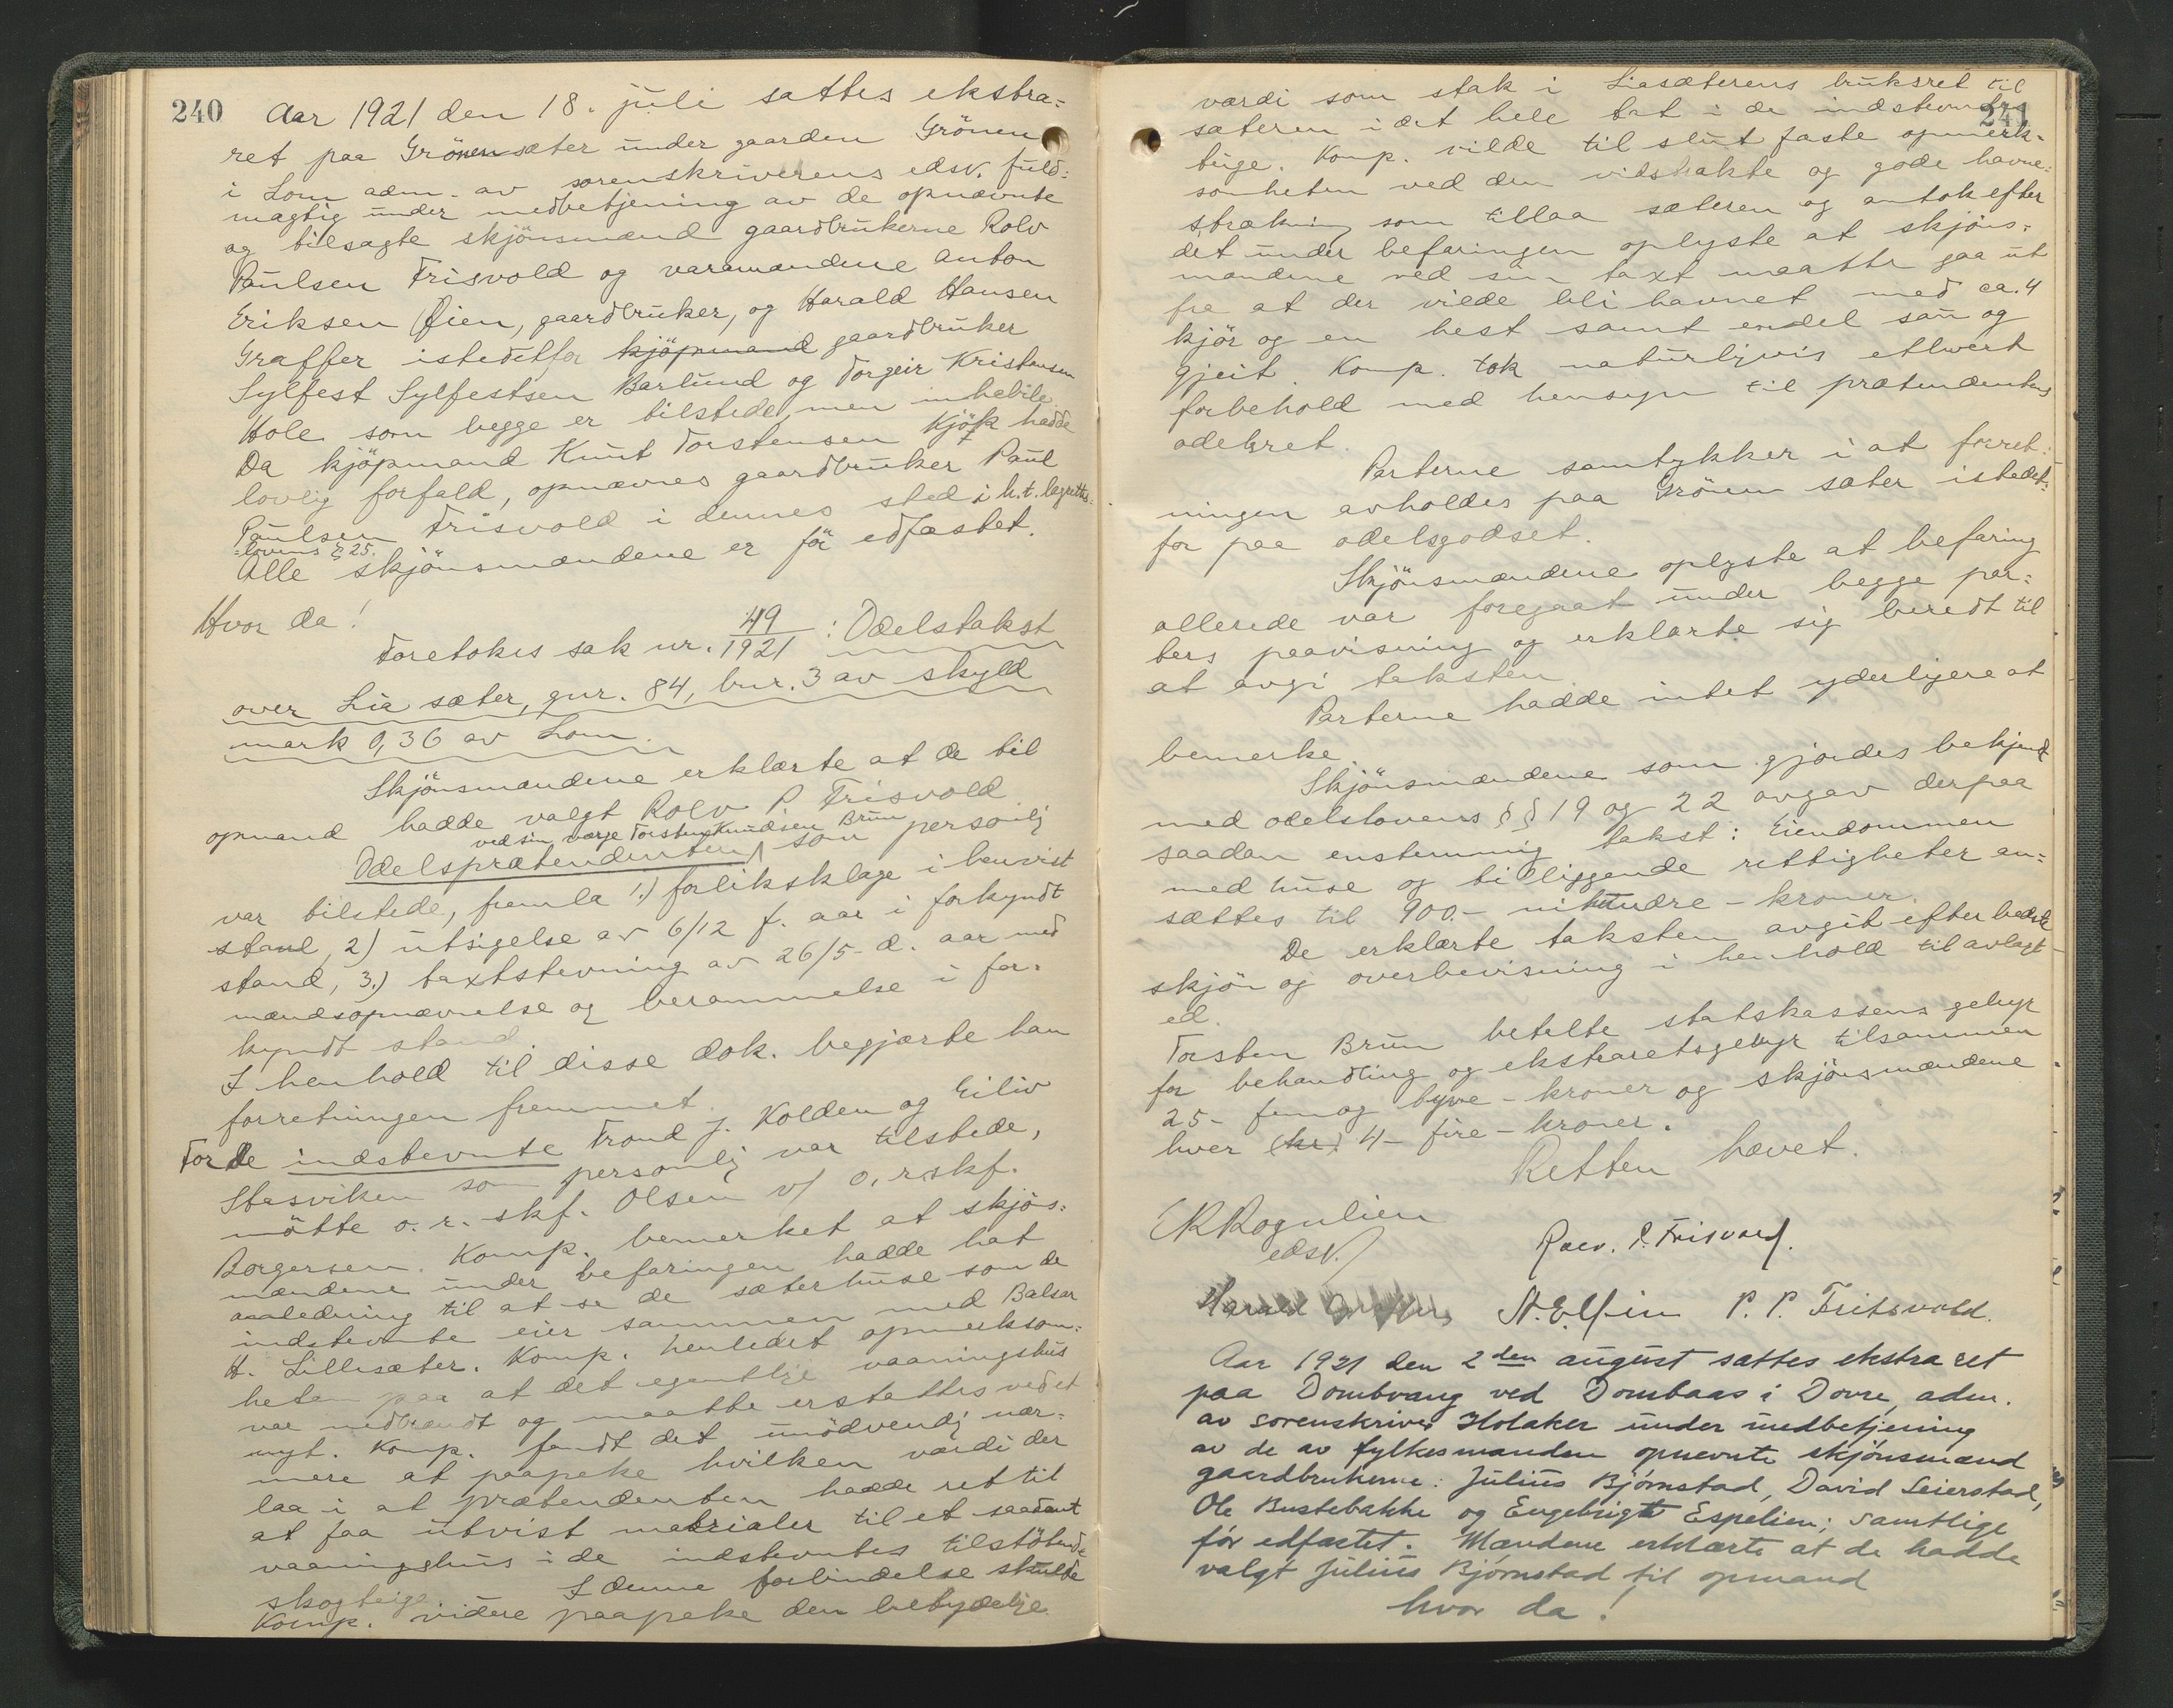 240
Aar 1921 den 18. juli sattes ekstra=
ret paa Grönensæter under gaarden Grönen
i Lom adm. av sorenskriverens edsv. fuld=
magtig under medbetjening av de opnævnte
og tilsagte skjönsmænd gaardbrukerne Rolv
Paulsen Frisvold og varamændene Anton
Eriksen Öien, gaardbruker, og Harald Hansen
Graffer istedetfor kjöpmand gaardbruker
Sylfest Sylfestsen Barlund og Torgeir Kristensen
Hole som begge er tilstede, men inhabile.
Da kjöpmand Knut Torstensen Kjök hadde
lovlig forfald, opnævnes gaardbruker Paul
Paulsen Frisvold i dennes sted i h.t. lagretts=
=lovens § 25.
Alle skjönsmændene er för edfæstet.
Hvor da!
Foretokes sak nr. 49/1921: Odelstakst
over Lia sæter, gnr. 84, bnr. 3 av skyld
mark 0,36 av Lom.
Skjönsmændene erklærte at de til
opmand hadde valgt Rolv P. Frisvold
ved sin værge Torsten Knudsen Brun
Odelsprætendenten som personlig
var tilstede, fremla 1.) forliksklage i henvist
stand, 2) utsigelse av 6/12 f. aar i forkyndt
stand, 3.) taxtstevning av 26/5 d. aar med
mændsopnævnelse og berammelse i for=
kyndt stand.
I henhold til disse dok. begjærte han
forretningen fremmet.
For de indstevnte Trond J. Kolden og Eiliv
Stasviken som personlig var tilstede,
mötte o. r. skf. Olsen v/ o.r.skf.
Borgersen. Komp. bemerket at skjös=
mændene under befaringen hadde hat
anledning til at se de sæterhuse som de
indstevnte eier sammen med Balsar
H. Lillesæter. Komp. henledet opmerksom=
heten paa at det egentlige vaaningshus
var nedbrændt og maatte erstattes ved et
nyt. Komp. fandt det unödvendig nær=
mere at paapeke hvilken værdi der
laa i at prætendenten hadde ret til
at faa utvist materialer til et saadant
vaaningshus i de indstevntes tilstötende
skogteige. I denne forbindelse skulde
Komp. videre paapeke den betydelige
241
værdi som stak i Liasæterens bruksret til
sæteren i det hele tat i de indstevntes
teige. Komp. vilde til slut fæste opmerk=
somheten ved den vidstrakte og gode havne=
strækning som tillaa sæteren og antok efter
det under befaringen oplyste at skjöns=
mændene ved sin taxt maatte gaa ut
fra at der vilde bli havnet med ca. 4
kjör og en hest samt endel sau og
gjeit. Komp. tok naturligvis ethvert
forbehold med hensyn til prætendentens
odelsret.
Parterne samtykker i at forret=
ningen avholdes paa Grönen sæter istedet=
for paa odelsgodset.
Skjönsmændene oplyste at befaring
allerede var foregaat under begge par=
ters paavisning og erklærte sig beredt til
at avgi taksten.
Parterne hadde intet yderligere at
bemerke.
Skjönsmændene som gjordes bekjendt
med odelslovens §§ 19 og 22 avgav derpaa
saadan enstemmig takst: Eiendommen
med huse og tilliggende rettigheter an=
sættes til 900.- nihundre - kroner.
De erklærte taksten avgit efter bedste
skjön og overbevisning i henhold til avlagt
ed.
Torsten Brun betalte statskassens gebyr
for behandling og ekstraretsgebyr tilsammen
25- femog tyve - kroner og skjönsmændene
hver (kr) 4- fire - kroner.
Retten hævet.
E R Rognlien
edsv.
Rolv. P. Frisvold.
Harald Graffer
A. E. Öien P. P. Frisvold.
Aar 1921 den 2den august sattes ekstraret
paa Dombvang ved Dombaas i Dovre, adm.
av sorenskriver Holaker under medbetjening
av de av fylkesmanden opnevnte skjönsmænd
gaardbrukerne: Julius Bjørnstad, David Seierstad,
Ole Bustebakke og Engebrigt Espelien; samtlige
før edfæstet. Mændene erklærte at de hadde
valgt Julius Bjørnstad til opmand
hvor da!